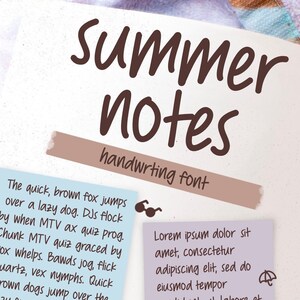 summer
notes
handwrting font
The quick, brown fox jumps
over a lazy dog. DJs flock
by when MTV ax quiz prog.
Chunk MTV quiz graced by
fox whelps. Bawds jog, flick
quartz, vex nymphs. Quick
brown dogs jump over the
Lorem ipsum dolor sit
amet, consectetur
adipiscing elit, sed do
eiusmod tempor